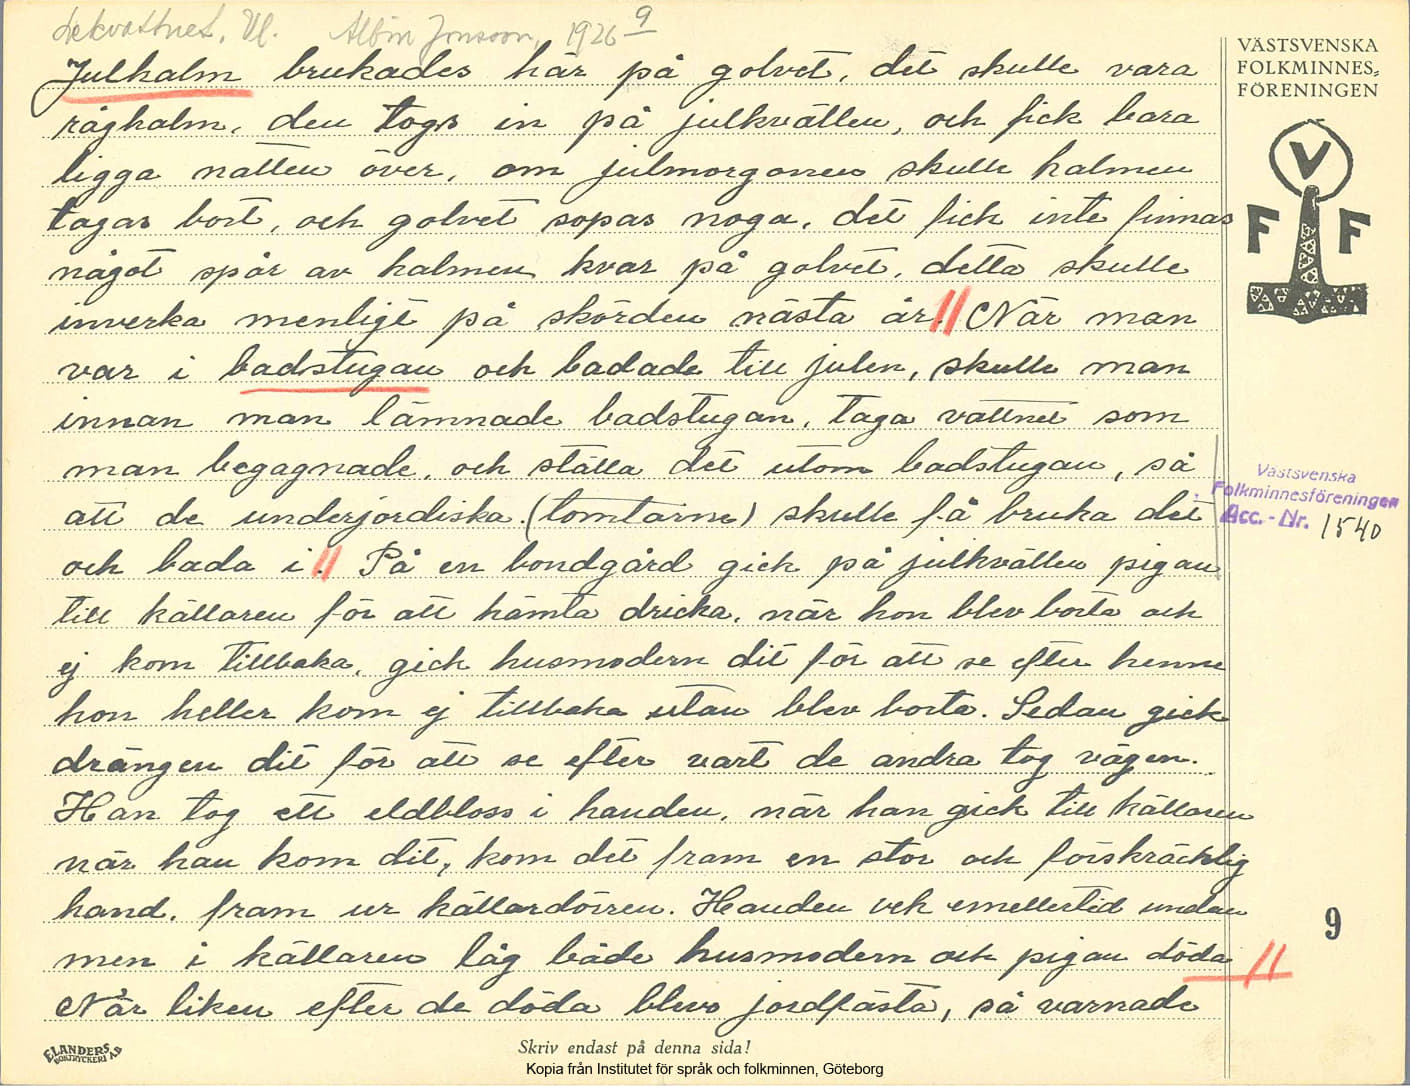 Lekvattnet, Vl. Albin Jonsson, 1926 9
VÄSTSVENSKA
FOLKMINNES=
FÖRENINGEN
V
F F
Julhalm brukades här på golvet, det skulle vara
råghalm, den togs in på julkvällen, och fick bara
ligga natten över, om julmorgonen skulle halmen
tagas bort, och golvet sopas noga, det fick inte finnas
något spår av halmen kvar på golvet, detta skulle
inverka menligt på skörden nästa år. // När man
var i badstugan och badade till julen, skulle man
innan man lämnade badstugan, taga vattnet som
man begagnade, och ställa det utom badstugan, så
att de underjordiska (tomtarne) skulle få bruka det
och bada i. // På en bondgård gick på julkvällen pigan
till källaren för att hämta dricka, när hon blev borta och
ej kom tillbaka, gick husmodern dit för att se efter henne
hon heller kom ej tillbaka utan blev borta. Sedan gick
drängen dit för att se efter vart de andra tog vägen.
Han tog ett eldbloss i handen, när han gick till källaren
när han kom dit, kom det fram en stor och förskräcklig
hand, fram ur källardörren. Handen vek emellertid undan
men i källaren låg både husmodern och pigan döda //
När liken efter de döda blevo jordfästa, så varnade
Västsvenska
Folkminnesföreningen
Acc.-Nr. 1540
9
ELANDERS
BOKTRYCKERI AB
Skriv endast på denna sida!
Kopia från Institutet för språk och folkminnen, Göteborg